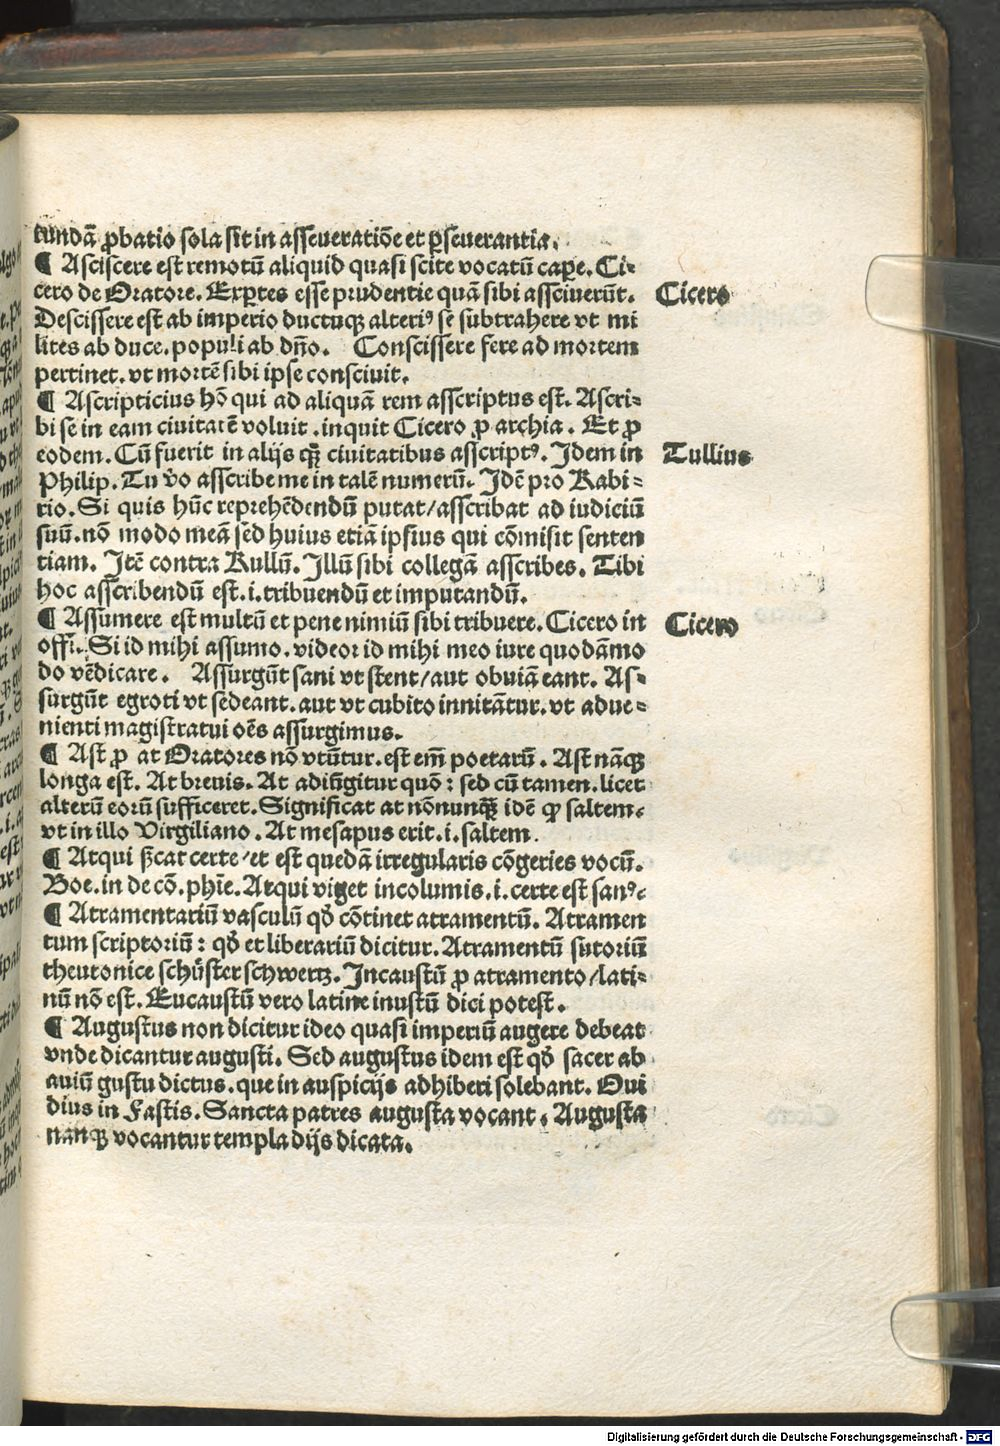 tundā ꝓbatio sola sit in asseueratiōe et ꝑseuerantia.
¶ Asciscere est remotū aliquid quasi scite vocatū capꝑe. Ci-
cero de Oratore. Exꝑtes esse prudentie quā sibi assciuerūt. Cicero
Descissere est ab imperio ductuqꝫ alteriꝰ se subtrahere vt mi
lites ab duce. populi ab dn̄o. Conscissere fere ad mortem
pertinet. vt mortē sibi ipse consciuit.
¶ Ascripticius hō qui ad aliquā rem asscriptus est. Ascri-
bi se in eam ciuitatē voluit. inquit Cicero ꝓ archia. Et ꝓ
eodem. Cū fuerit in alijs qꝫ̄ ciuitatibus asscriptꝰ. Idem in Tullius
Philip. Tu v̊o asscribe me in talē numerū. Idē pro Rabi-
rio. Si quis hūc reprehēdendū putat/asscribat ad iudiciū
suū. nō modo meā sed huius etiā ipsius qui cōmisit senten
tiam. Itē contra Rullū. Illū sibi collegā asscribes. Tibi
hoc asscribendū est. i. tribuendū et imputandū.
¶ Assumere est multū et pene nimiū sibi tribuere. Cicero in Cicero
offi. Si id mihi assumo. videor id mihi meo iure quodāmo
do vēdicare. Assurgūt sani vt stent/aut obuiā eant. As-
surgūt egroti vt sedeant. aut vt cubito innitātur. vt adue-
nienti magistratui oēs assurgimus.
¶ Ast ꝓ at Oratores nō vtūtur. est em̄ poetarū. Ast nāqꝫ
longa est. At breuis. At adiūgitur quō: sed cū tamen. licet
alterū eorū sufficeret. Significat at nōnunqꝫ̄ idē ꝙ saltem.
vt in illo Virgiliano. At mesapus erit. i. saltem.
¶ Atqui ſ̄cat certe/et est quedā irregularis cōgeries vocū.
Boe. in de cō. phīe. Atqui viget incolumis. i. certe est sanꝰ.
¶ Atramentariū vasculū qđ cōtinet atramentū. Atramen
tum scriptoriū: qđ et liberariū dicitur. Atramentū sutoriū
theutonice schůster schwertz. Incaustū ꝓ atramento/lati-
nū nō est. Eucaustū vero latine inustū dici potest.
¶ Augustus non dicitur ideo quasi imperiū augere debeat
vnde dicantur augusti. Sed augustus idem est qđ sacer ab
auiū gustu dictus. que in auspicijs adhiberi solebant. Oui
dius in Fastis. Sancta patres augusta vocant. Augusta
nanqꝫ vocantur templa dijs dicata.
Digitalisierung gefördert durch die Deutsche Forschungsgemeinschaft - DFG